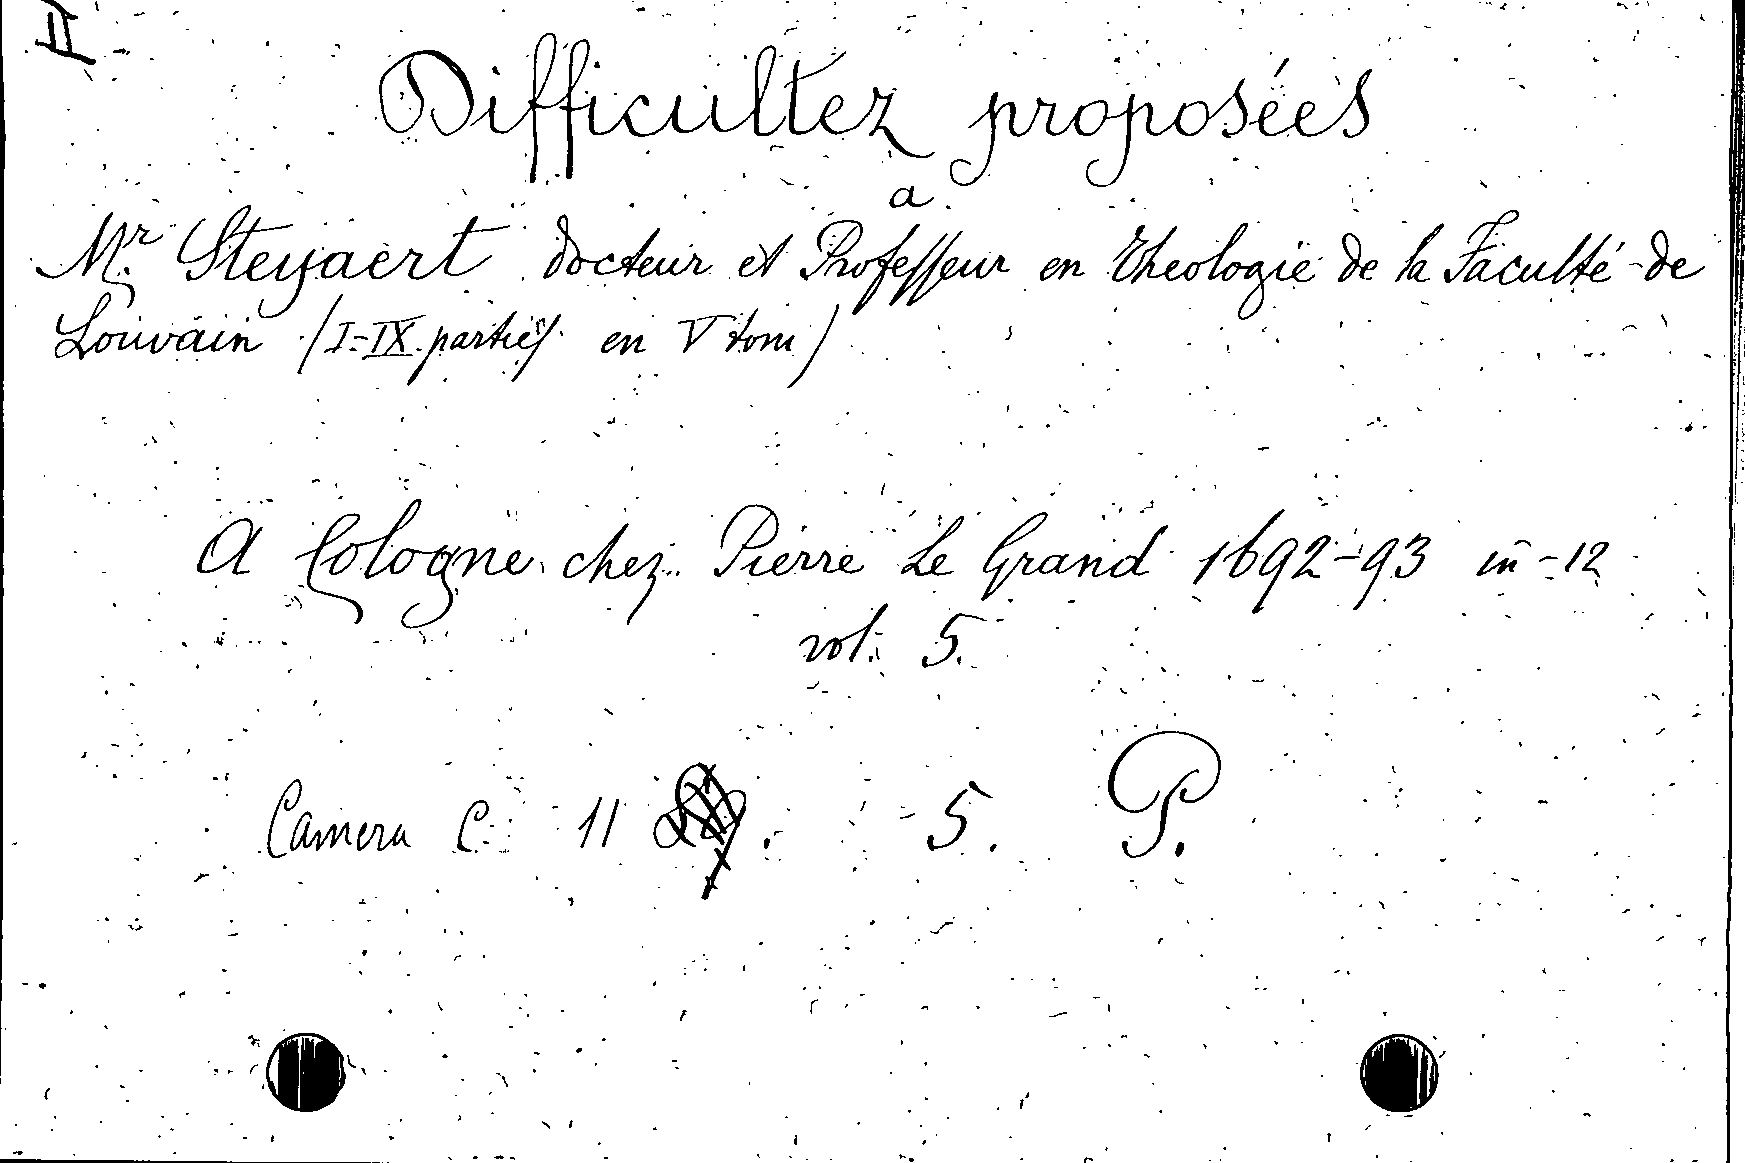 II
Difficultez proposées
a
Mr. Steyaert docteur et Professeur en Theologie de la Faculté de
Louvain (I-IX parties en V tom)
A Cologne chez Pierre Le Grand 1692-93 in-12
vol. 5.
Camera C. 11 . 5. P.